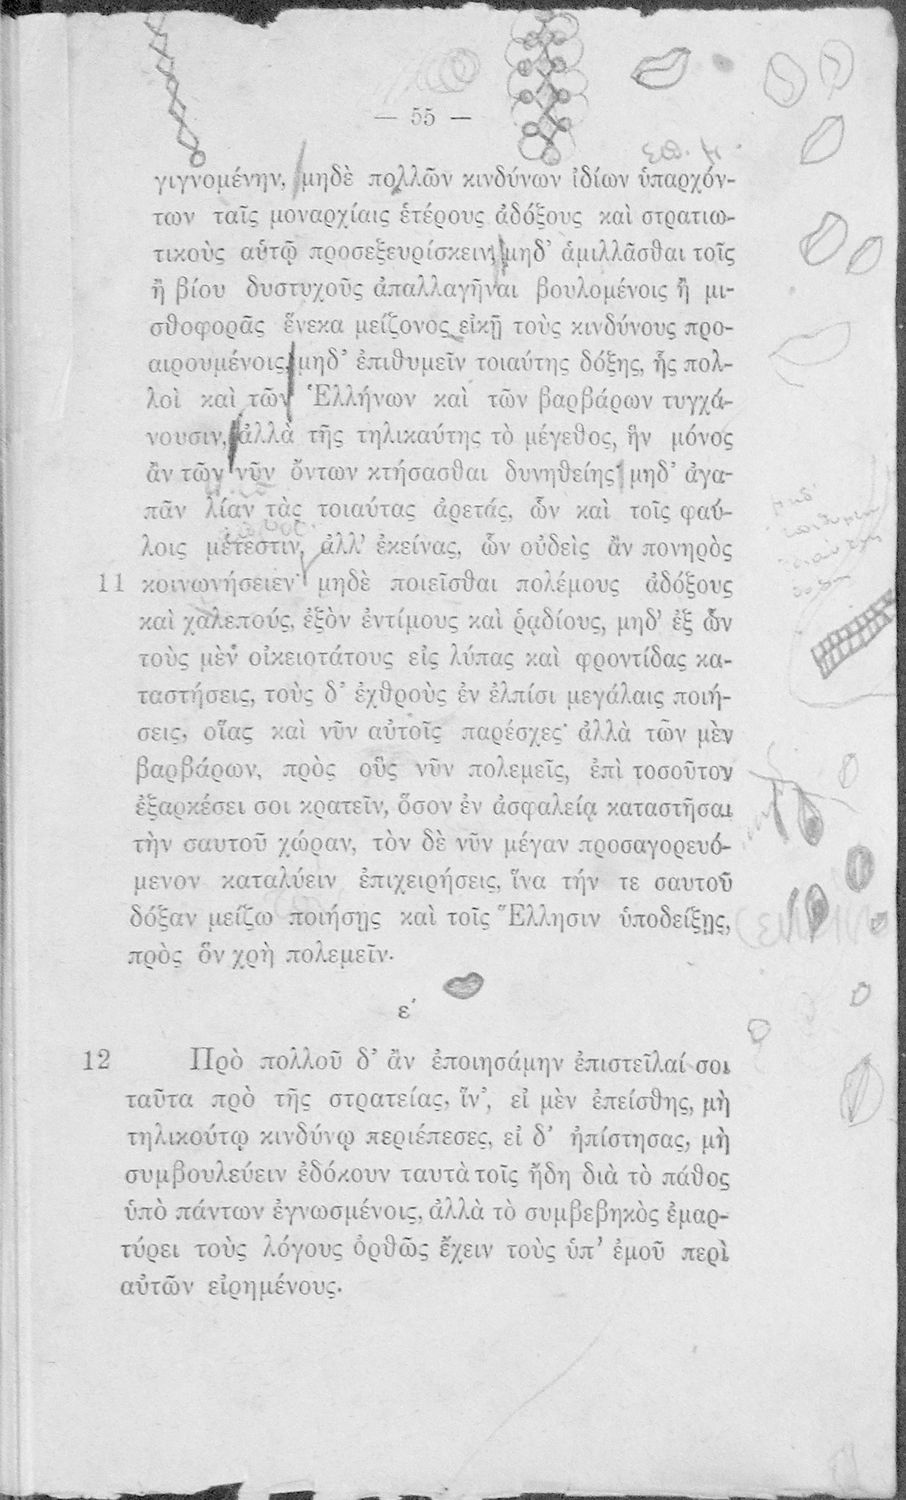 — 55 —
γιγνομένην, μηδὲ πολλῶν κινδύνων ἰδίων ὑπαρχόν-
των ταῖς μοναρχίαις ἑτέρους ἀδόξους καὶ στρατιω-
τικοὺς αὑτῷ προσεξευρίσκειν, μηδ᾿ ἁμιλλᾶσθαι τοῖς
ἢ βίου δυστυχοῦς ἀπαλλαγῆναι βουλομένοις ἢ μι-
σθοφορᾶς ἕνεκα μείζονος εἰκῇ τοὺς κινδύνους προ-
αιρουμένοις, μηδ᾿ ἐπιθυμεῖν τοιαύτης δόξης, ἧς πολ-
λοὶ καὶ τῶν Ἑλλήνων καὶ τῶν βαρβάρων τυγχά-
νουσιν, ἀλλὰ τῆς τηλικαύτης τὸ μέγεθος, ἣν μόνος
ἂν τῶν νῦν ὄντων κτήσασθαι δυνηθείης· μηδ᾿ ἀγα-
πᾶν λίαν τὰς τοιαύτας ἀρετάς, ὧν καὶ τοῖς φαύ-
λοις μέτεστιν, ἀλλ᾿ ἐκείνας, ὧν οὐδεὶς ἂν πονηρὸς
11 κοινωνήσειεν· μηδὲ ποιεῖσθαι πολέμους ἀδόξους
καὶ χαλεπούς, ἐξὸν ἐντίμους καὶ ῥᾳδίους, μηδ᾿ ἐξ ὧν
τοὺς μὲν οἰκειοτάτους εἰς λύπας καὶ φροντίδας κα-
ταστήσεις, τοὺς δ᾿ ἐχθροὺς ἐν ἐλπίσι μεγάλαις ποιή-
σεις, οἵας καὶ νῦν αὐτοῖς παρέσχες· ἀλλὰ τῶν μὲν
βαρβάρων, πρὸς οὓς νῦν πολεμεῖς, ἐπὶ τοσοῦτον
ἐξαρκέσει σοι κρατεῖν, ὅσον ἐν ἀσφαλείᾳ καταστῆσαι
τὴν σαυτοῦ χώραν, τὸν δὲ νῦν μέγαν προσαγορευό-
μενον καταλύειν ἐπιχειρήσεις, ἵνα τήν τε σαυτοῦ
δόξαν μείζω ποιήσῃς καὶ τοῖς Ἕλλησιν ὑποδείξῃς,
πρὸς ὃν χρὴ πολεμεῖν.
ε΄
12 Πρὸ πολλοῦ δ᾿ ἂν ἐποιησάμην ἐπιστεῖλαί σοι
ταῦτα πρὸ τῆς στρατείας, ἵν᾿, εἰ μὲν ἐπείσθης, μὴ
τηλικούτῳ κινδύνῳ περιέπεσες, εἰ δ᾿ ἠπίστησας, μὴ
συμβουλεύειν ἐδόκουν ταυτὰ τοῖς ἤδη διὰ τὸ πάθος
ὑπὸ πάντων ἐγνωσμένοις, ἀλλὰ τὸ συμβεβηκὸς ἐμαρ-
τύρει τοὺς λόγους ὀρθῶς ἔχειν τοὺς ὑπ᾿ ἐμοῦ περὶ
αὐτῶν εἰρημένους.